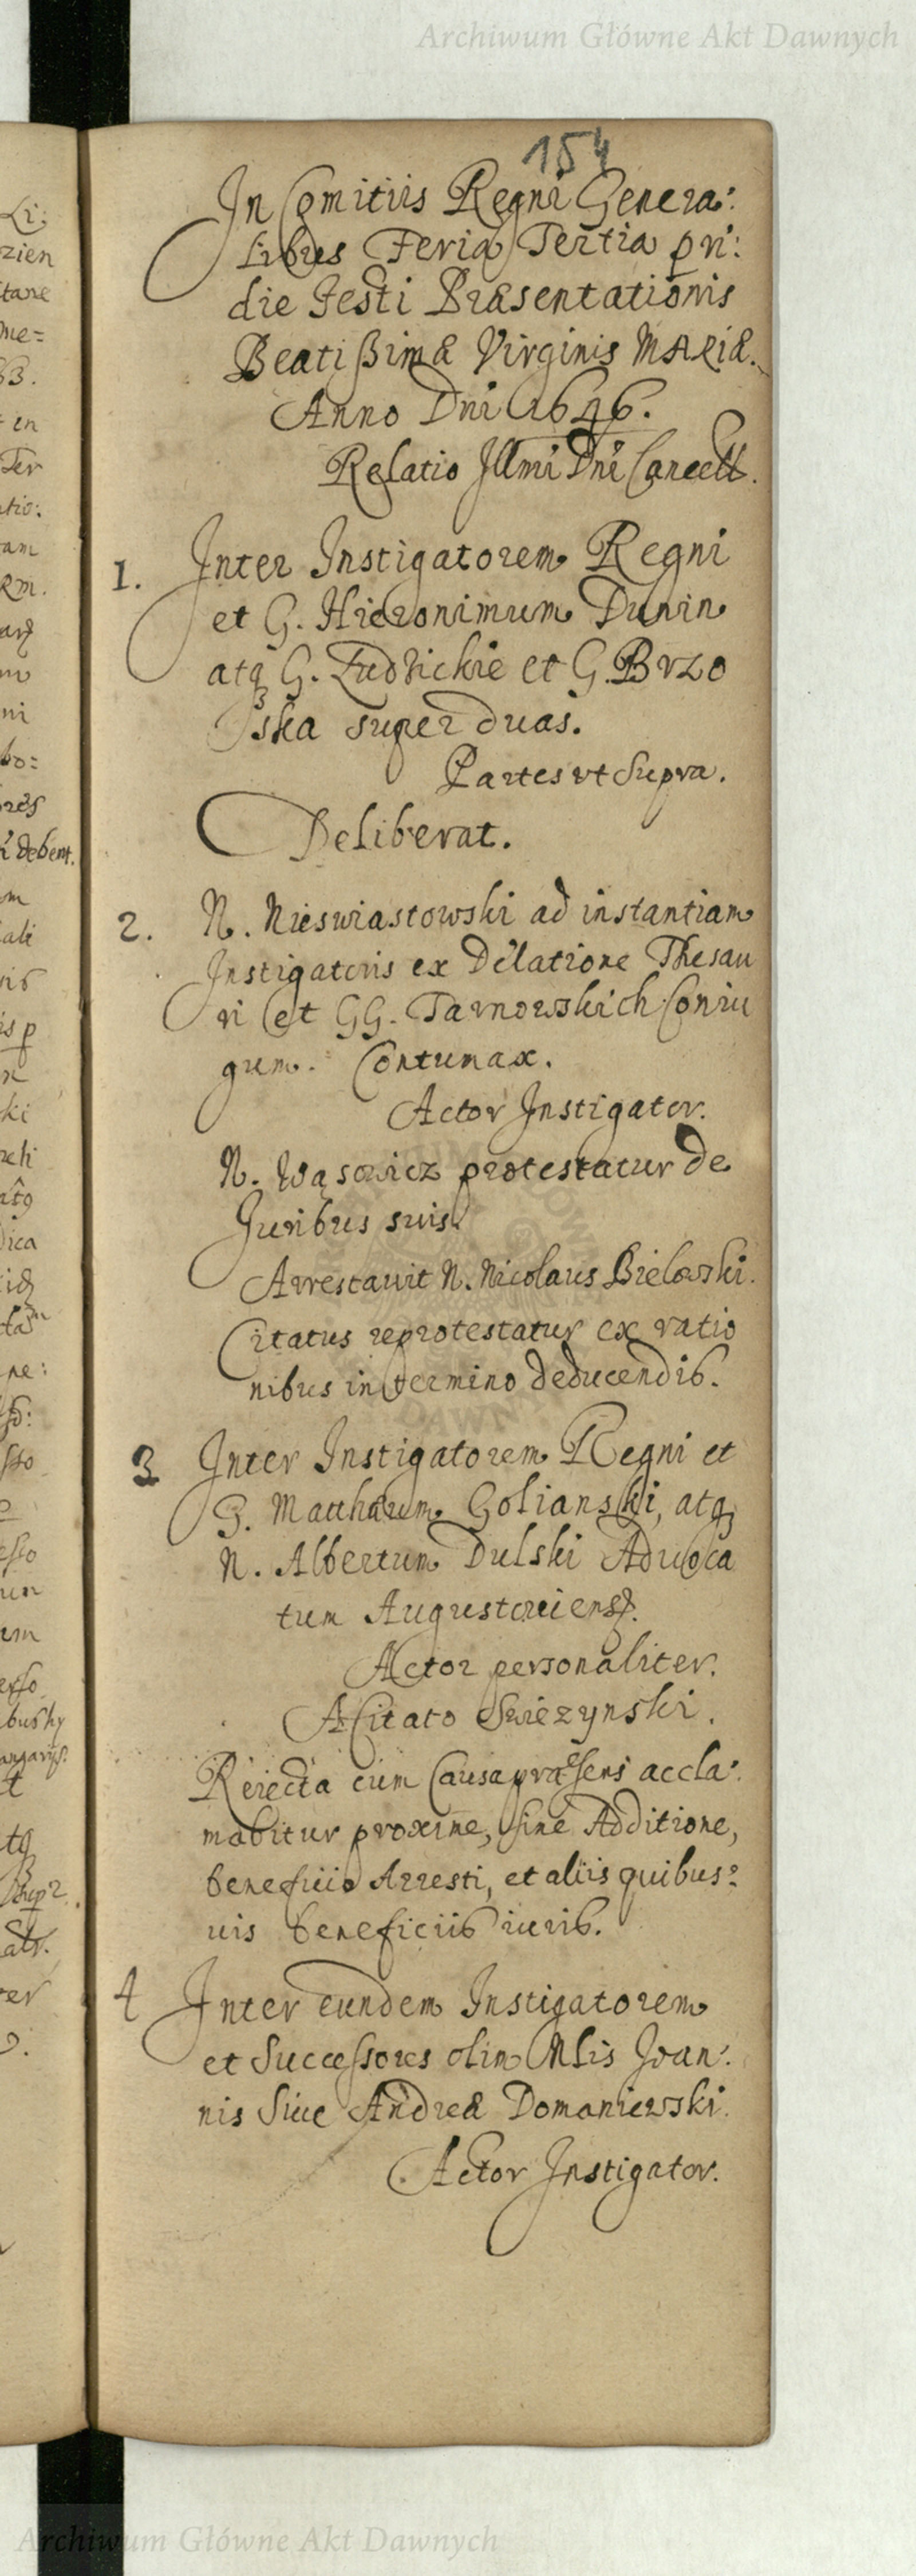 Archiwum Główne Akt Dawnych
154
In Comitiis Regni Genera:
libus Feria Tertia pri:
die Festi Præsentationis
Beatißimæ Virginis MARIÆ.
Anno Dni 1646.
Relatio Illmi Dni Cancell.
1. Inter Instigatorem Regni
et G. Hieronimum Dunin
atq G. Ludzickie et G. Brzo
ska super duas.
Partes vt Supra.
Deliberat.
2. N. Nieswiastowski ad instantiam
Instigatoris ex Delatione Thesau
ri et GG. Tarnowskich Coniu
gum. Contumax.
Actor Instigator.
N. Wąsowicz protestatur de
Juribus suis.
Arrestauit N. Nicolaus Bielowski.
Citatus reprotestatur ex ratio
nibus in termino deducendis.
3 Inter Instigatorem Regni et
G. Matthæum Golianski, atq
N. Albertum Dulski Aduoca
tum Augustouiens.
Actor personaliter.
A Citato Swiezynski.
Reiecta cum Causa præsens accla:
mabitur proxime, sine Additione,
beneficio Arresti, et aliis quibus:
uis beneficiis iuris.
4 Inter eundem Instigatorem
et Successores olim Nlis Joan:
nis Siue Andreæ Domaniewski.
Actor Instigator.
Archiwum Główne Akt Dawnych